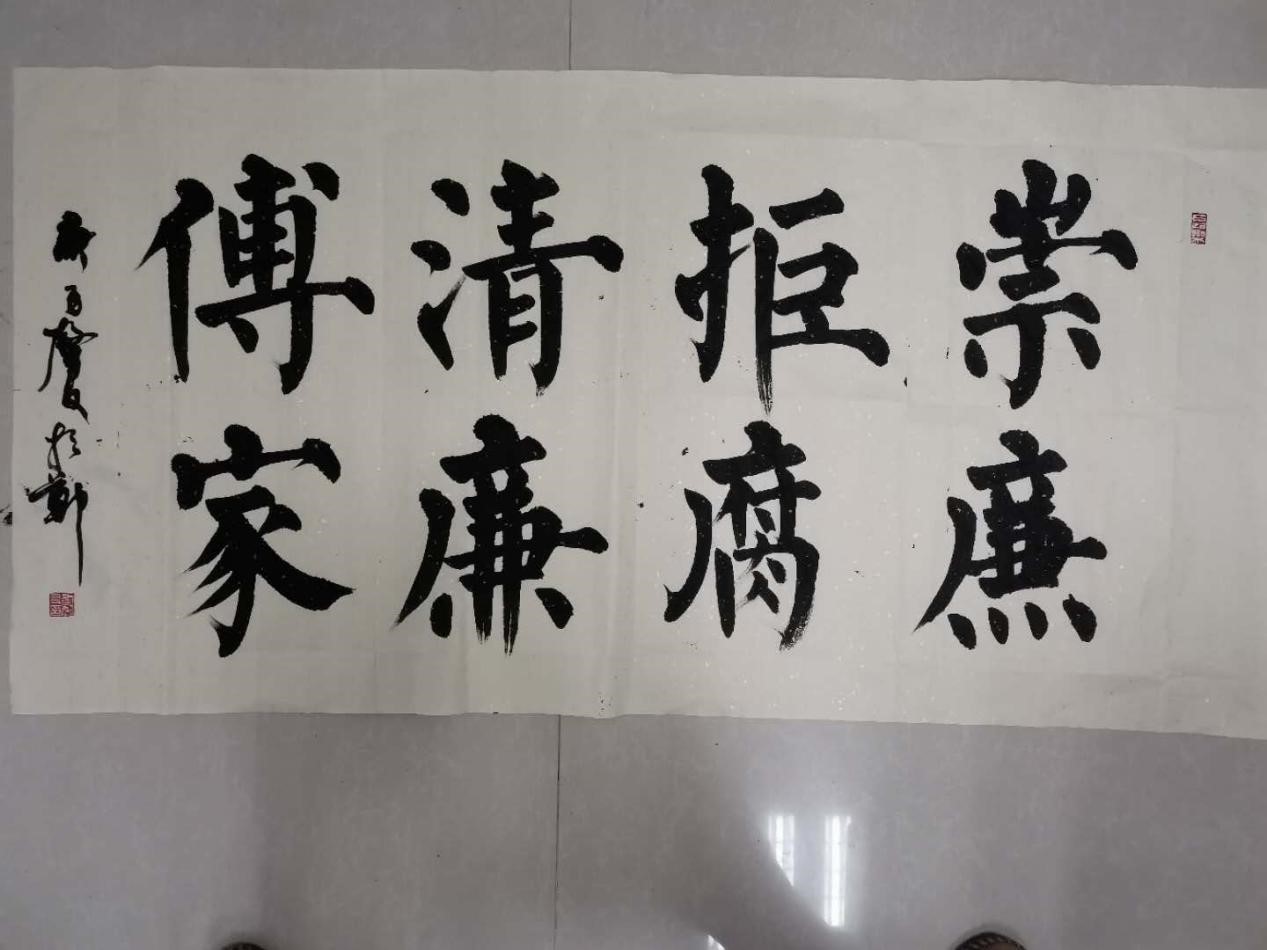 崇廉
拒腐
清廉
傅家